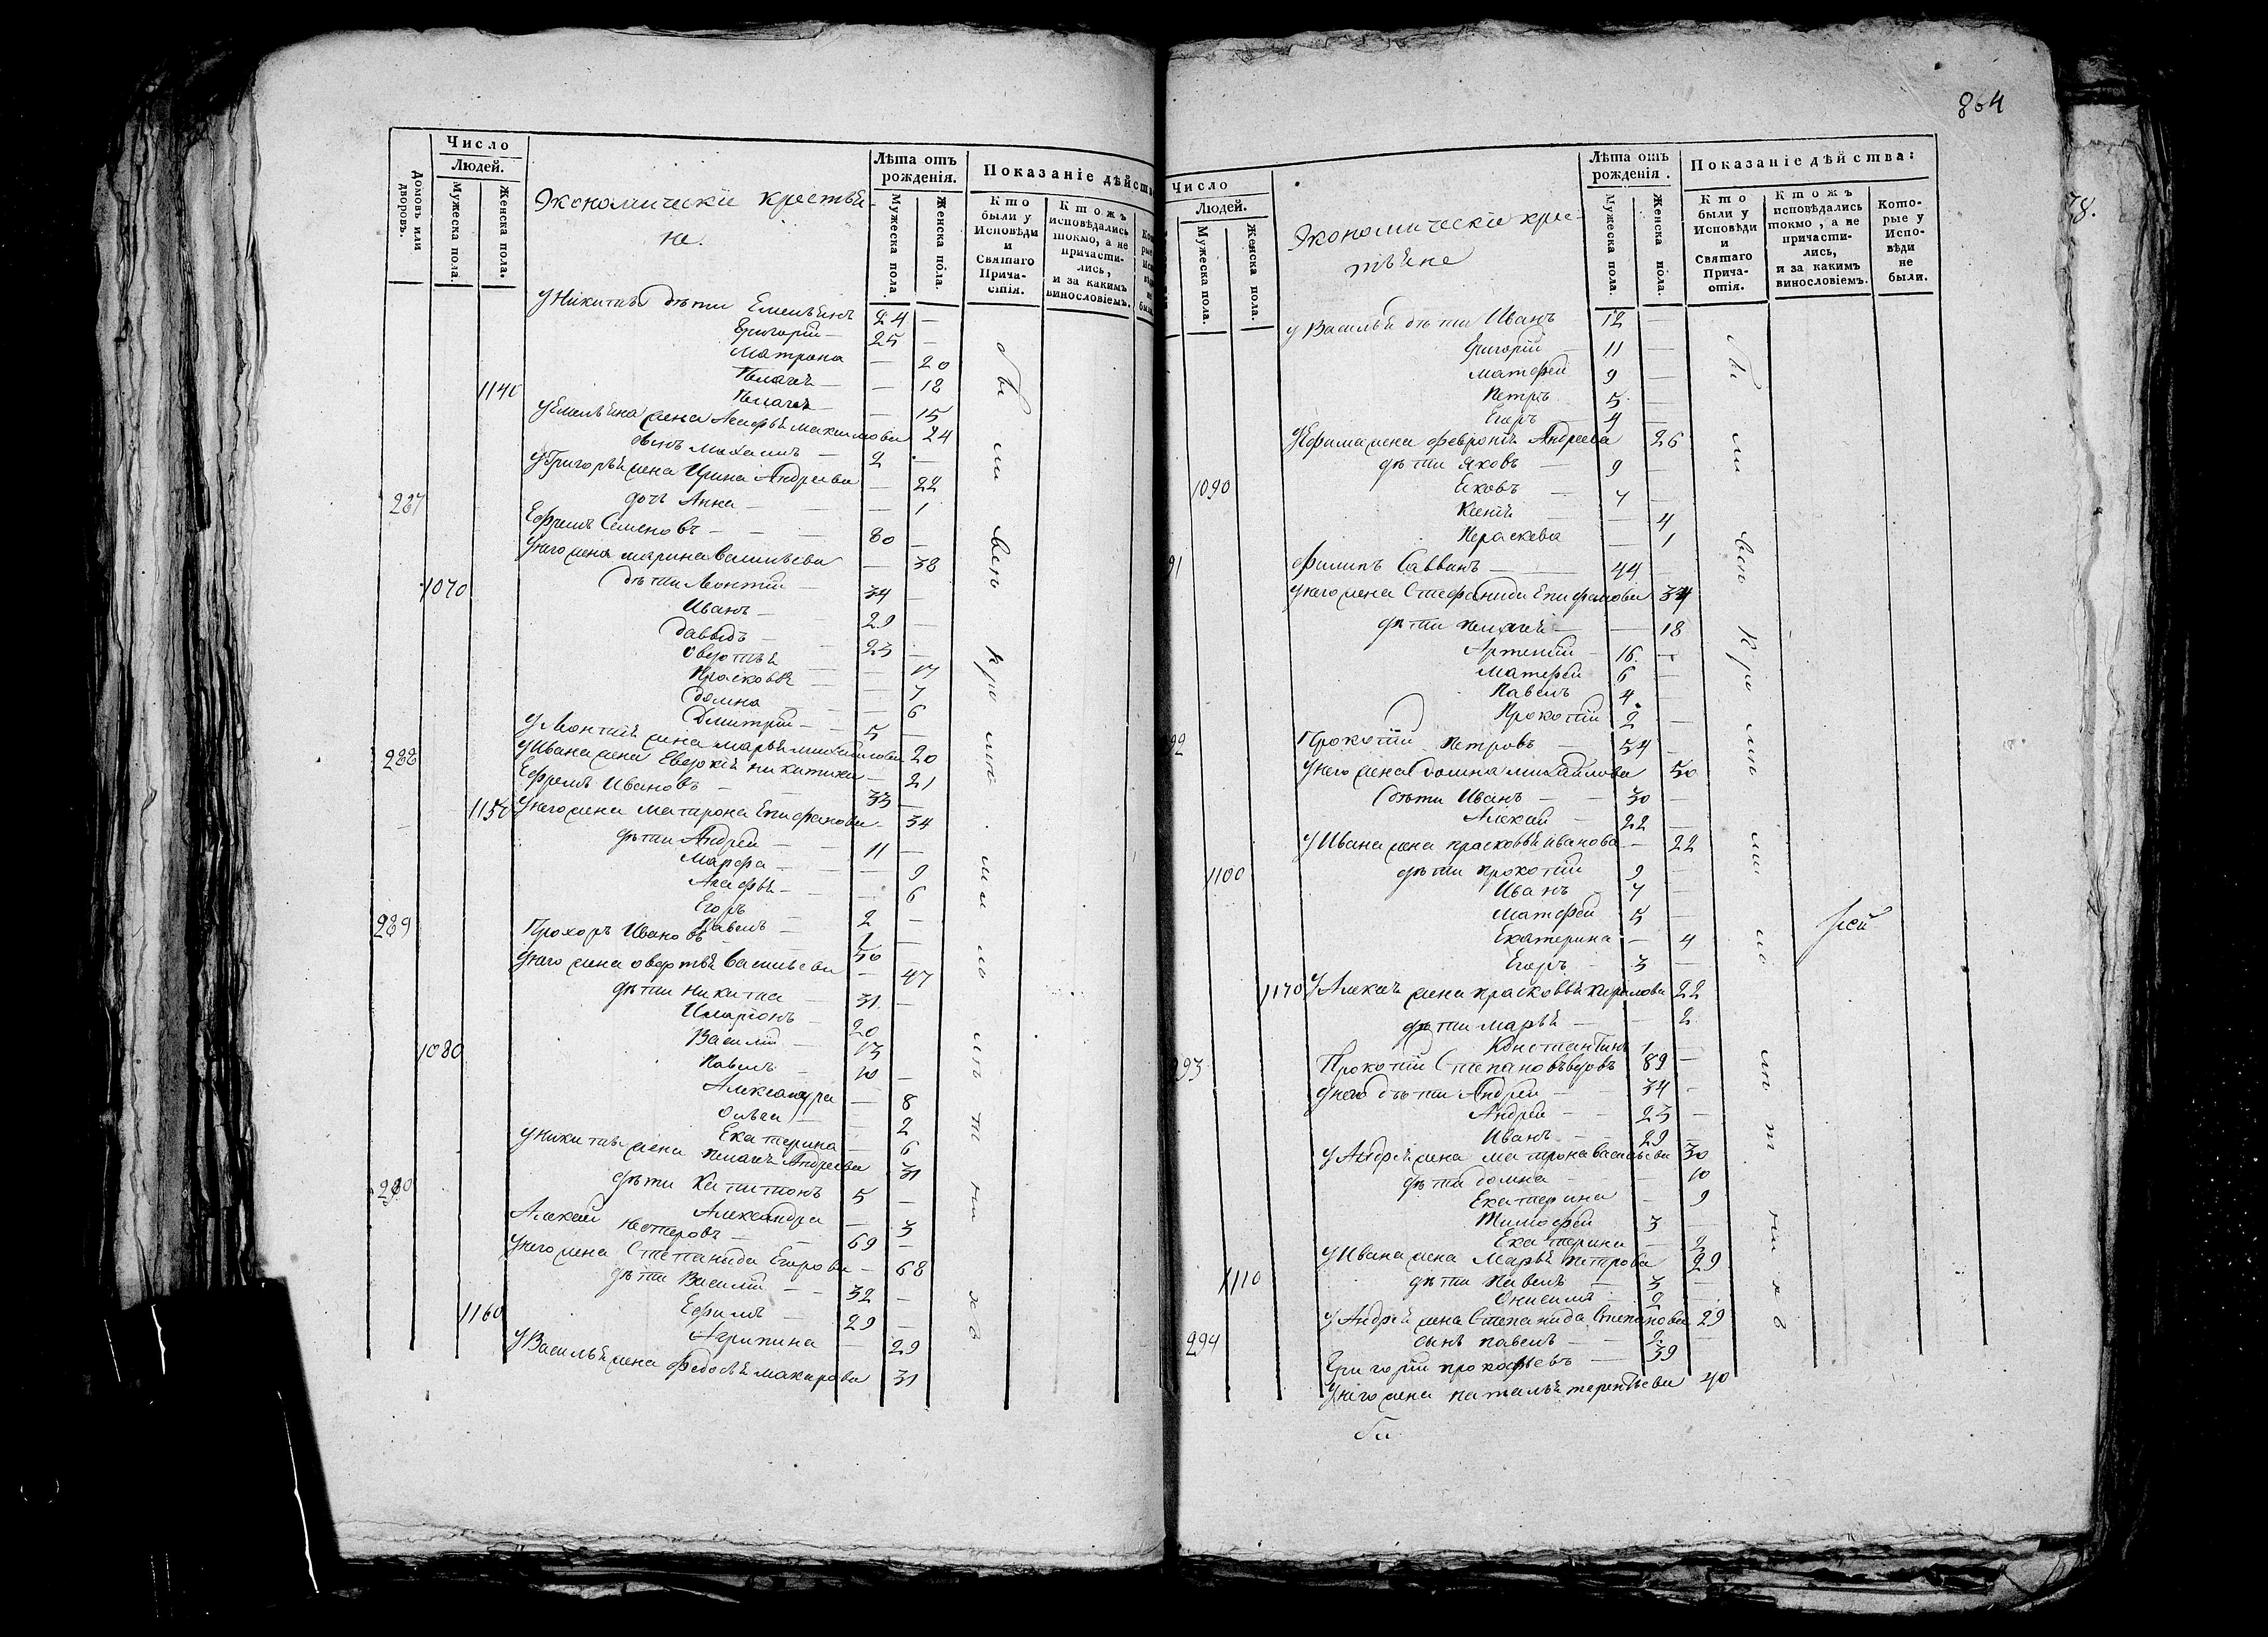 864
78.
Домовъ или дворовъ.
Число
Людей.
Мужеска пола.
Женска пола.
Экономическіе крестья-
не.
Лѣта отъ рожденія.
Мужеска пола.
Женска пола.
Показаніе дѣйств
Кто были у Исповѣди и Святаго Прича-стія.
Ктожъ исповѣдались токмо, а не причасти-лись, и за какимъ винословіемъ.
У Никиты дѣти Емельянъ 24 —
Григорій — 25 —
Матрона — 20
Пелагея — 18
1140 Пелагея — 15
У Емельяна жена Агафья Максимова 24
сынъ Михаилъ — 2 —
У Григорья жена Ирина Андреева — 22
дочь Анна — 1
287 Ефремъ Семеновъ — 80 —
У него жена Марина Васильева — 38
1070 дѣти Леонтій — 34 —
Иванъ — 29 —
Давыдъ — 23 —
Овдотья — 17
Прасковья — 7
Домна — 6
Дмитрій — 5 —
У Леонтія жена Марья Михайлова 20
У Ивана жена Евдокія Никитина — 21
288 Ефремъ Ивановъ — 33 —
1150 У него жена Матрона Епифанова — 34
дѣти Андрей — 11 —
Марфа — 9
Агафья — 6
Егоръ 2 —
Павелъ — 1 —
289 Прохоръ Ивановъ — 50 —
У него жена Овдотья Васильева — 47
дѣти Никита — 31 —
Иларіонъ — 20
Василій — 13
1080 Павелъ — 10 —
Александра — 8
Ольга — 2
Екатерина — 6
У Никиты жена Пелагея Андреева 31
дѣти Капитонъ 5 —
Александра — 3
290 Алексей Нестеровъ — 69 —
У него жена Степанида Егорова — 68
дѣти Василій — 32 —
Ефимъ — 29 —
1160 Агрипина — 29
У Василья жена Федосья Макарова 31
Число
Людей.
Мужеска пола.
Женска пола.
Экономическіе крес-
тьяне
Лѣта отъ рожденія.
Мужеска пола.
Женска пола.
Показаніе дѣйства:
Кто были у Исповѣди и Святаго Прича-стія.
Ктожъ исповѣдались токмо, а не причасти-лись, и за какимъ винословіемъ.
Кото-рые у Испо-вѣди не были.
У Василья дѣти Иванъ 12 —
Григорій — 11 —
Матфей 9 —
Петръ 5 —
Егоръ 4 —
У Ефима жена Февронія Андреева 26
дѣти Яковъ — 9 —
1090 Яковъ — 7 —
Ксенія — 4
Параскева — 1
91 Филипъ Саввинъ — 44 —
У него жена Стефанида Епифанова 34
дѣти Пелагея — 18
Артемій — 16 —
Матфей 6 —
Павелъ 4 —
Прокопій 2 —
92 Прокопій Петровъ — 54 —
У него жена Домна Михайлова 50
дѣти Иванъ — 30 —
Алексей — 22 —
У Ивана жена Прасковья Иванова — 22
1100 дѣти Прокопій 9 —
Иванъ — 7 —
Матфей 5 —
Екатерина — 4
Егоръ — 3 —
1170 У Алексея жена Прасковья Кирилова 22
дѣти Марья — 2
Константинъ 1 —
93 Прокопій Степановъ вдовъ 89
У него дѣти Андрей — 34 —
Андрей — 23 —
Иванъ — 29 —
У Андрея жена Матрона Васильева 30
дѣти Домна — 10
Екатерина — 9
Тимофей 3 —
Екатерина — 2
У Ивана жена Марья Петрова 29
1110 дѣти Павелъ — 3 —
Онисимъ — 2 —
У Андрея жена Степанида Степанова 29
сынъ Павелъ — 2 —
294 Григорій Прокофьевъ — 39
У него жена Наталья Терентьева 40